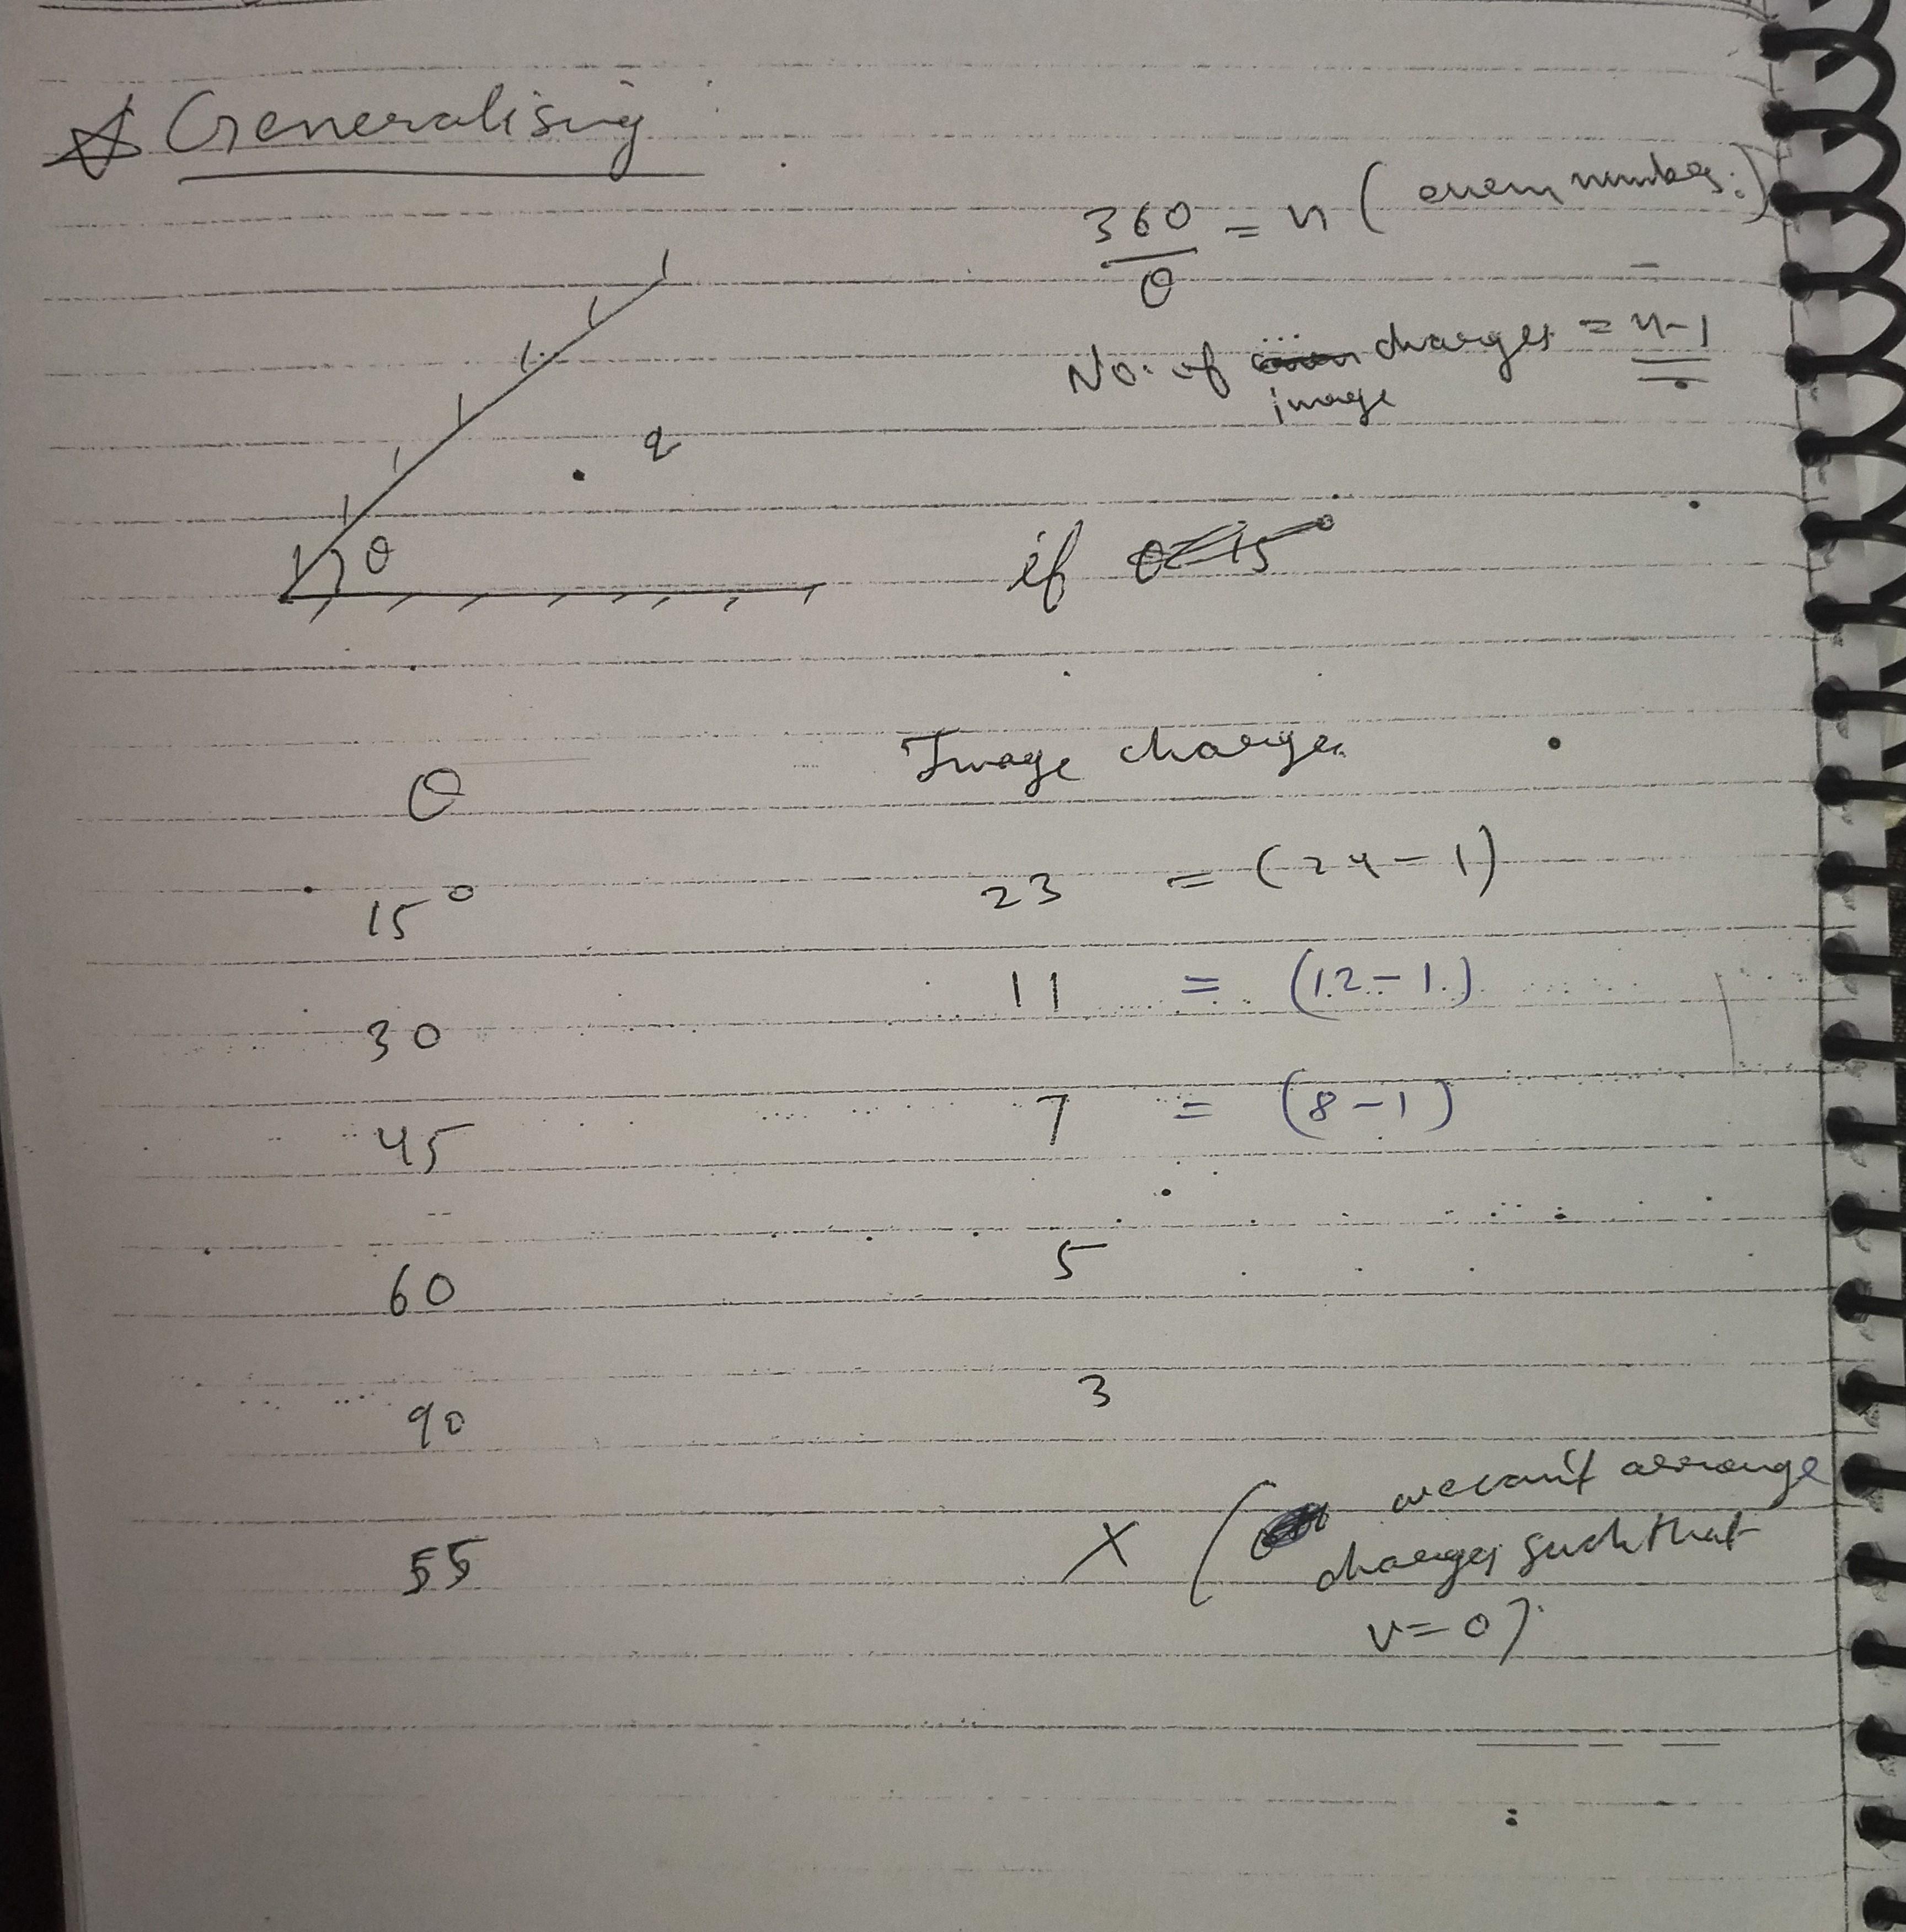 Generalising
360/θ = n (even number)
No. of charges = n-1
image
q
θ
if θ=15°
θ Image charge
15° 23 = (24-1)
30 11 = (12-1)
45 7 = (8-1)
60 5
90 3
55 X ( we can't arrange
charges such that
v=0)